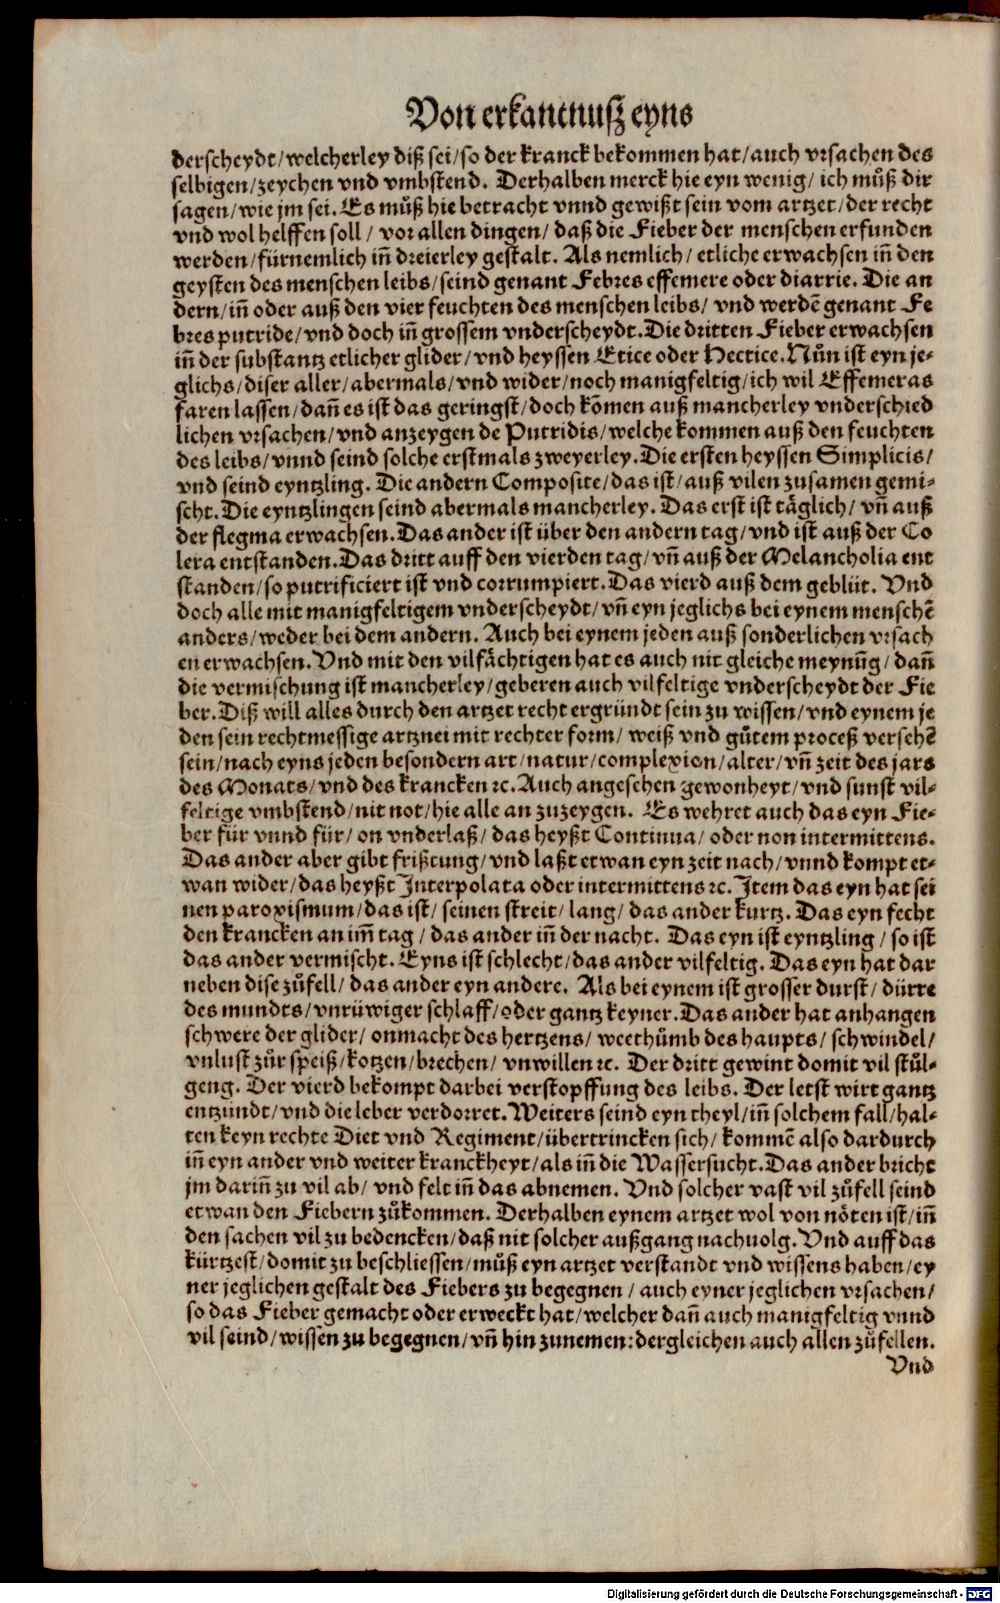 Von erkantnusz eyns
derscheydt/welcherley diß sei/so der kranck bekommen hat/auch vrsachen des
selbigen/zeychen vnd vmbstend. Derhalben merck hie eyn wenig/ ich můß dir
sagen/wie jm sei. Es můß hie betracht vnnd gewißt sein vom artzet/der recht
vnd wol helffen soll / vor allen dingen/ daß die Fieber der menschen erfunden
werden/fürnemlich iñ dreierley gestalt. Als nemlich/ etliche erwachsen iñ den
geysten des menschen leibs/seind genant Febres effemere oder diarrie. Die an
dern/iñ oder auß den vier feuchten des menschen leibs/ vnd werdẽ genant Fe
bres putride/vnd doch iñ grossem vnderscheydt. Die dritten Fieber erwachsen
iñ der substantz etlicher glider/vnd heyssen Etice oder Hectice. Nůn ist eyn je-
glichs/diser aller/abermals/vnd wider/noch manigfeltig/ich wil Effemeras
faren lassen/dañ es ist das geringst/doch kõmen auß mancherley vnderschied
lichen vrsachen/vnd anzeygen de Putridis/welche kommen auß den feuchten
des leibs/vnnd seind solche erstmals zweyerley. Die ersten heyssen Simplicis/
vnd seind eyntzling. Die andern Composite/das ist/auß vilen zusamen gemi-
scht. Die eyntzlingen seind abermals mancherley. Das erst ist täglich/ vñ auß
der flegma erwachsen. Das ander ist über den andern tag/vnd ist auß der Co
lera entstanden. Das dritt auff den vierden tag/vñ auß der Melancholia ent
standen/so putrificiert ist vnd corrumpiert. Das vierd auß dem geblüt. Vnd
doch alle mit manigfeltigem vnderscheydt/vñ eyn jeglichs bei eynem menschẽ
anders/weder bei dem andern. Auch bei eynem jeden auß sonderlichen vrsach
en erwachsen. Vnd mit den vilfächtigen hat es auch nit gleiche meynũg/dañ
die vermischung ist mancherley/geberen auch vilfeltige vnderscheydt der Fie
ber. Diß will alles durch den artzet recht ergründt sein zu wissen/vnd eynem je
den sein rechtmessige artznei mit rechter form/ weiß vnd gůtem proceß versehẽ
sein/nach eyns jeden besondern art/natur/complexion/alter/vñ zeit des jars
des Monats/vnd des krancken ꝛc. Auch angesehen gewonheyt/vnd sunst vil-
feltige vmbstend/nit not/hie alle an zuzeygen. Es wehret auch das eyn Fie-
ber für vnnd für/ on vnderlaß/ das heyßt Continua/ oder non intermittens.
Das ander aber gibt frißtung/vnd laßt etwan eyn zeit nach/vnnd kompt et-
wan wider/das heyßt Interpolata oder intermittens ꝛc. Item das eyn hat sei
nen paroxismum/das ist/ seinen streit/lang/ das ander kurtz. Das eyn fecht
den krancken an im̃ tag / das ander iñ der nacht. Das eyn ist eyntzling / so ist
das ander vermischt. Eyns ist schlecht/das ander vilfeltig. Das eyn hat dar
neben dise zůfell/ das ander eyn andere. Als bei eynem ist grosser durst/ dürre
des mundts/vnrüwiger schlaff/oder gantz keyner. Das ander hat anhangen
schwere der glider/ onmacht des hertzens/ weethůmb des haupts/ schwindel/
vnlust zůr speiß/kotzen/brechen/ vnwillen ꝛc. Der dritt gewint domit vil stůl-
geng. Der vierd bekompt darbei verstopffung des leibs. Der letst wirt gantz
entzündt/vnd die leber verdorret. Weiters seind eyn theyl/iñ solchem fall/hal-
ten keyn rechte Diet vnd Regiment/übertrincken sich/ kommẽ also dardurch
iñ eyn ander vnd weiter kranckheyt/als iñ die Wassersucht. Das ander bricht
jm dariñ zu vil ab/ vnd felt iñ das abnemen. Vnd solcher vast vil zůfell seind
etwan den Fiebern zůkommen. Derhalben eynem artzet wol von nöten ist/iñ
den sachen vil zu bedencken/daß nit solcher außgang nachuolg. Vnd auff das
kürtzest/domit zu beschliessen/můß eyn artzet verstandt vnd wissens haben/ey
ner jeglichen gestalt des Fiebers zu begegnen / auch eyner jeglichen vrsachen/
so das Fieber gemacht oder erweckt hat/welcher dañ auch manigfeltig vnnd
vil seind/wissen zu begegnen/vñ hin zunemen: dergleichen auch allen zůfellen.
Vnd
Digitalisierung gefördert durch die Deutsche Forschungsgemeinschaft - DFG